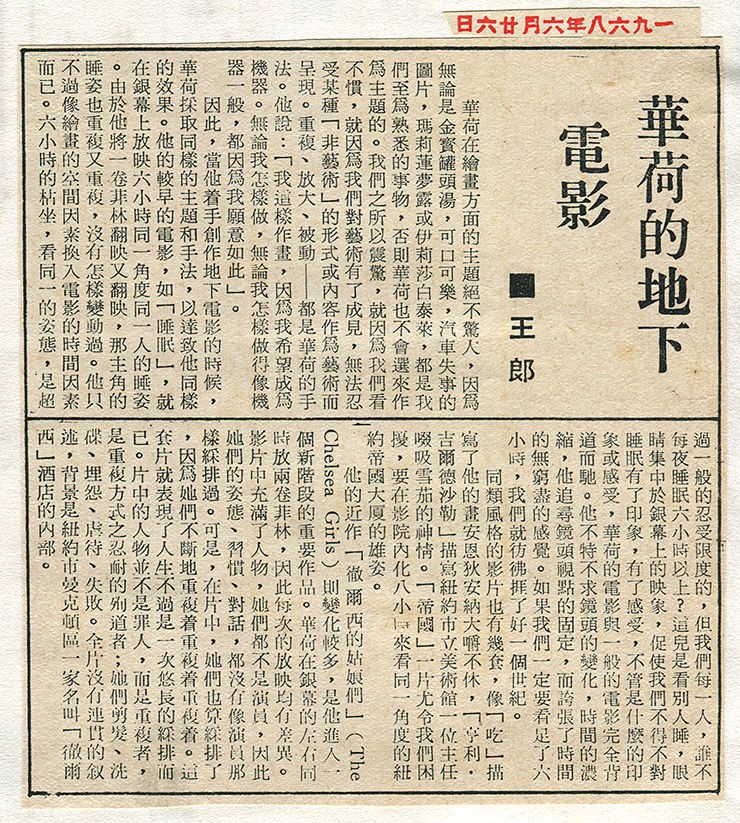 一九六八年六月廿六日
華荷的地下
電影
■王郎
華荷在繪畫方面的主題絕不驚人，因爲
無論是金寶罐頭湯，可口可樂，汽車失事的
圖片，瑪莉蓮夢露或伊莉莎白泰萊，都是我
們至爲熟悉的事物，否則華荷也不會選來作
爲主題的。我們之所以震驚，就因爲我們看
不慣，就因爲我們對藝術有了成見，無法忍
受某種「非藝術」的形式或內容作爲藝術而
呈現。重複、放大、被動——都是華荷的手
法。他說：「我這樣作畫，因爲我希望成爲
機器。無論我怎樣做，無論我怎樣做得像機
器一般，都因爲我願意如此」。
因此，當他着手創作地下電影的時候，
華荷採取同樣的主題和手法，以達致他同樣
的效果。他的較早的電影，如「睡眠」，就
在銀幕上放映六小時同一角度同一人的睡姿
。由於他將一卷菲林翻映又翻映，那主角的
睡姿也重複又重複，沒有怎樣變動過。他只
不過像繪畫的空間因素換入電影的時間因素
而已。六小時的枯坐，看同一的姿態，是超
過一般的忍受限度的，但我們每一人，誰不
每夜睡眠六小時以上？這兒是看別人睡，眼
睛集中於銀幕上的映象，促使我們不得不對
睡眠有了印象，有了感受，不管是什麼的印
象或感受，華荷的電影與一般的電影完全背
道而馳。他不特不求鏡頭的變化，時間的濃
縮，他追尋鏡頭視點的固定，而誇張了時間
的無窮盡的感覺。如果我們一定要看足了六
小時，我們就彷彿捱了好一個世紀。
同類風格的影片也有幾套，像「吃」描
寫了他的畫安恩狄安納大嚼不休，「亨利·
吉爾德沙勒」描寫紐約市立美術館一位主任
啜吸雪茄的神情。「帝國」一片尤令我們困
擾，要在影院內化八小時來看同一角度的紐
約帝國大厦的雄姿。
他的近作「徹爾西的姑娘們」（The
Chelsea Girls）則變化較多，是他進入一
個新階段的重要作品。華荷在銀幕的左右同
時放兩卷菲林，因此每次的放映均有差異。
影片中充滿了人物，她們都不是演員，因此
她們的姿態、習慣、對話，都沒有像演員那
樣綵排過。可是，在片中，她們也算綵排了
，因爲她們不斷地重複着重複着重複着。這
套片就表現了人生不過是一次悠長的綵排而
已。片中的人物並不是罪人，而是重複者，
是重複方式之忍耐的殉道者；她們剪髮、洗
碟、埋怨、虐待、失敗。全片沒有連貫的叙
述，背景是紐約市曼克頓區一家名叫「徹爾
西」酒店的內部。